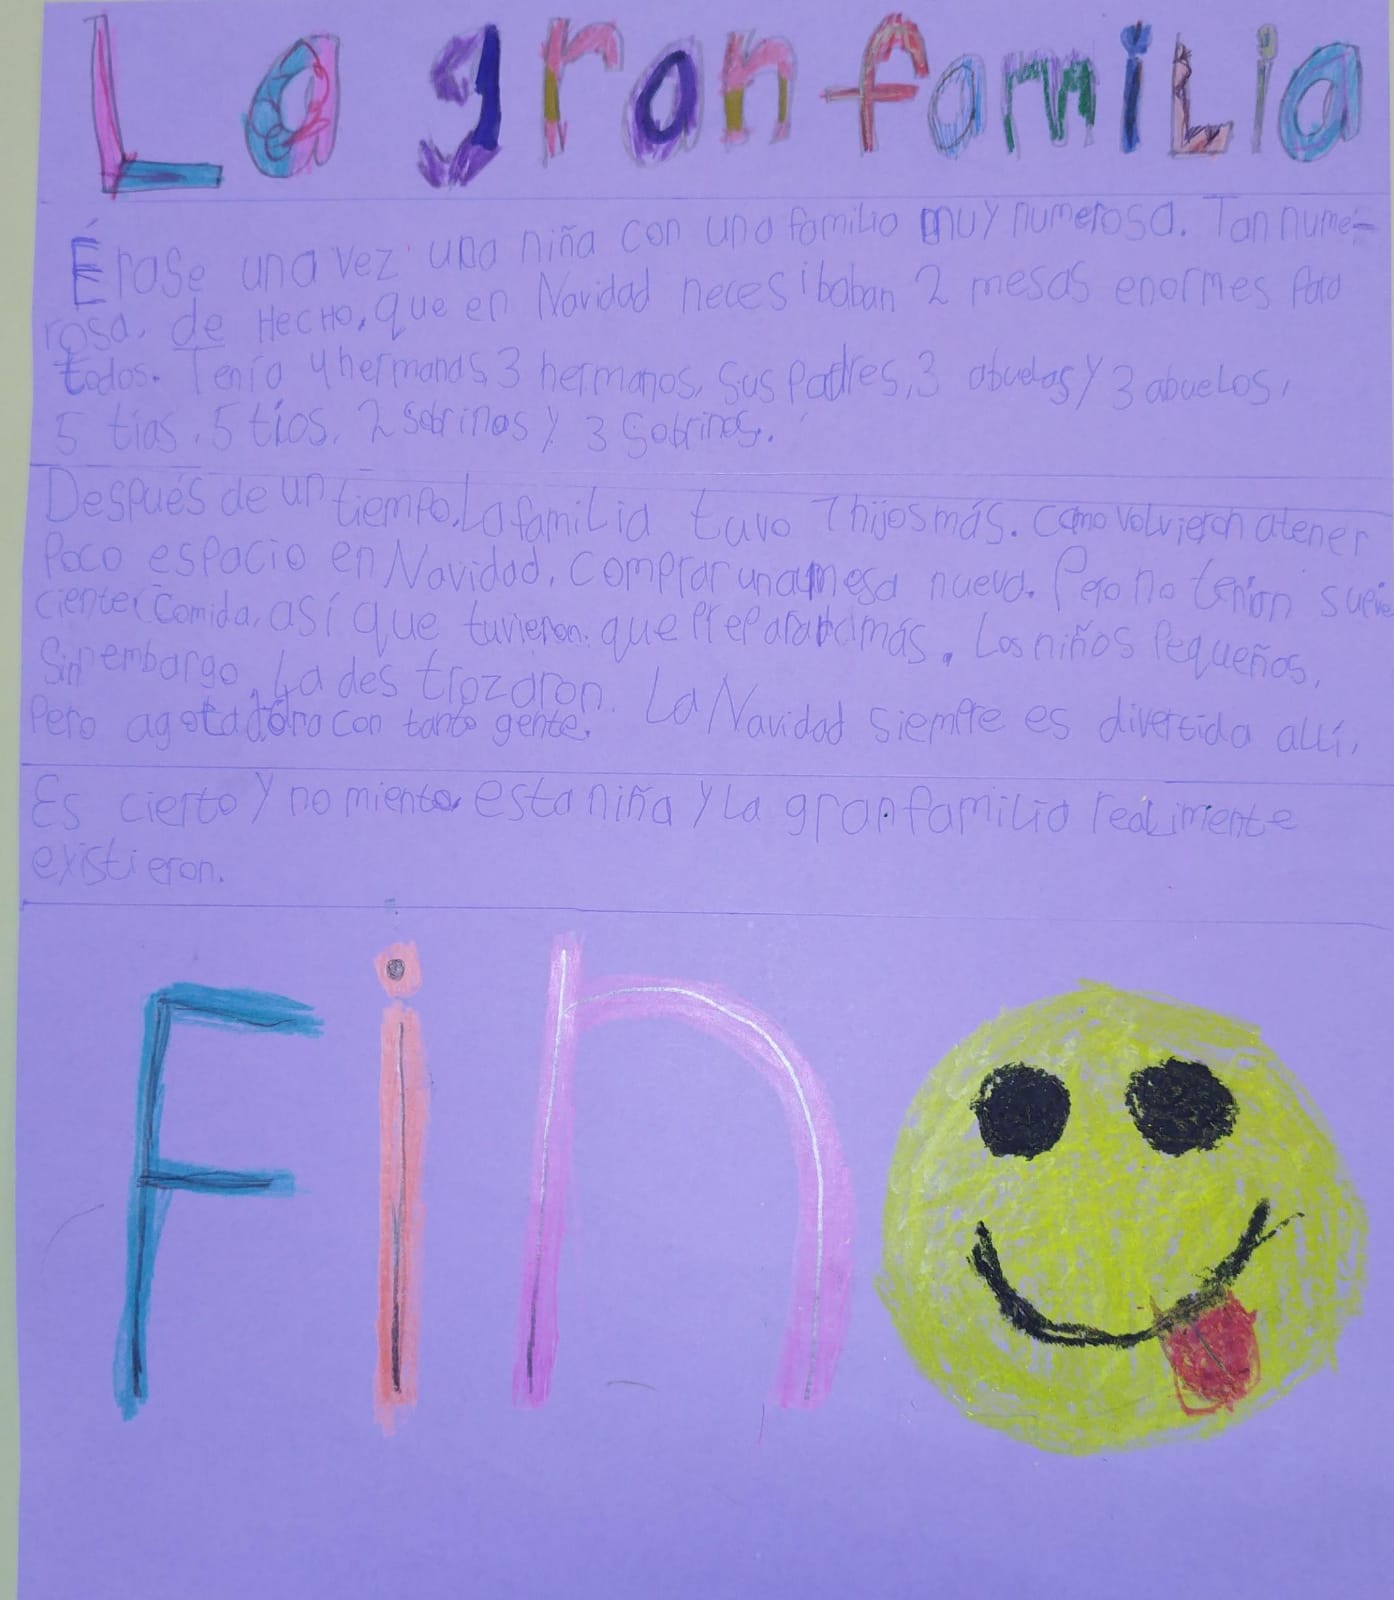 La gran familia
Érase una vez una niña con una familia muy numerosa. Tan nume-
rosa, de HecHo, que en Navidad necesibaban 2 mesas enormes para
todos. Tenía 4 hermanas, 3 hermanos, sus padres, 3 abuelas y 3 abuelos,
5 tías, 5 tíos, 2 sobrinas y 3 sobrinos.
Después de un tiempo, la familia tuvo 7 hijos más. Como volvieron a tener
poco espacio en Navidad, comprar una mesa nueva. Pero no tenían sufi-
ciente comida, así que tuvieron que preparar más. Los niños pequeños,
sin embargo, la destrozaron. La Navidad siempre es divertida allí,
pero agotadora con tanta gente.
Es cierto y no miento, esta niña y la gran familia realimente
existieron.
Fin